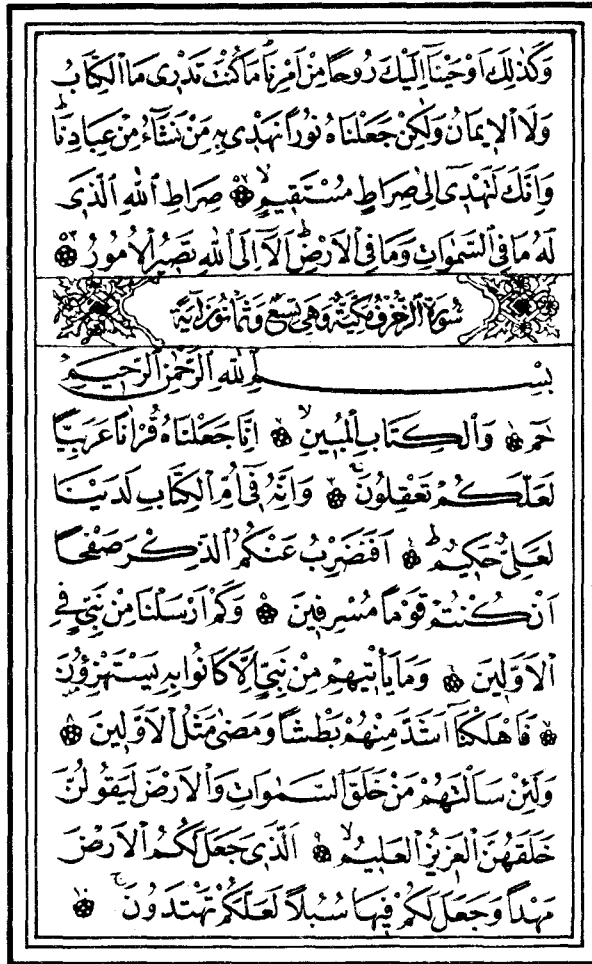 وَكَذٰلِكَ اَوْحَيْنَٓا اِلَيْكَ رُوحاً مِنْ اَمْرِنَاۜ مَا كُنْتَ تَدْرٖى مَا الْكِتَابُ
وَلَا الْاٖيمَانُ وَلٰكِنْ جَعَلْنَاهُ نُوراً نَهْدٖى بِهٖ مَنْ نَشَٓاءُ مِنْ عِبَادِنَاۜ
وَاِنَّكَ لَتَهْدٖٓى اِلٰى صِرَاطٍ مُسْتَقٖيمٍۙ ۝ صِرَاطِ اللّٰهِ الَّذٖى
لَهُ مَا فِى السَّمٰوَاتِ وَمَا فِى الْاَرْضِۜ اَلَٓا اِلَى اللّٰهِ تَصٖيرُ الْاُمُورُ ۝٥٣
سُورَةُ الزُّخْرُفِ مَكِّيَّةٌ وَهِىَ تِسْعٌ وَثَمَانُونَ اٰيَةً
بِسْمِ اللّٰهِ الرَّحْمٰنِ الرَّحٖيمِ
حٰمٓ ۝ وَالْكِتَابِ الْمُبٖينِۙ ۝ اِنَّا جَعَلْنَاهُ قُرْاٰناً عَرَبِيًّا
لَعَلَّكُمْ تَعْقِلُونَۚ ۝ وَاِنَّهُ فٖٓى اُمِّ الْكِتَابِ لَدَيْنَا
لَعَلِىٌّ حَكٖيمٌۜ ۝ اَفَنَضْرِبُ عَنْكُمُ الذِّكْرَ صَفْحاً
اَنْ كُنْتُمْ قَوْماً مُسْرِفٖينَ ۝ وَكَمْ اَرْسَلْنَا مِنْ نَبِىٍّ فِى
الْاَوَّلٖينَ ۝ وَمَا يَأْتٖيهِمْ مِنْ نَبِىٍّ اِلَّا كَانُوا بِهٖ يَسْتَهْزِؤُنَ
۝ فَاَهْلَكْنَٓا اَشَدَّ مِنْهُمْ بَطْشاً وَمَضٰى مَثَلُ الْاَوَّلٖينَ ۝
وَلَئِنْ سَاَلْتَهُمْ مَنْ خَلَقَ السَّمٰوَاتِ وَالْاَرْضَ لَيَقُولُنَّ
خَلَقَهُنَّ الْعَزٖيزُ الْعَلٖيمُۙ ۝ اَلَّذٖى جَعَلَ لَكُمُ الْاَرْضَ
مَهْداً وَجَعَلَ لَكُمْ فٖيهَا سُبُلاً لَعَلَّكُمْ تَهْتَدُونَۚ ۝